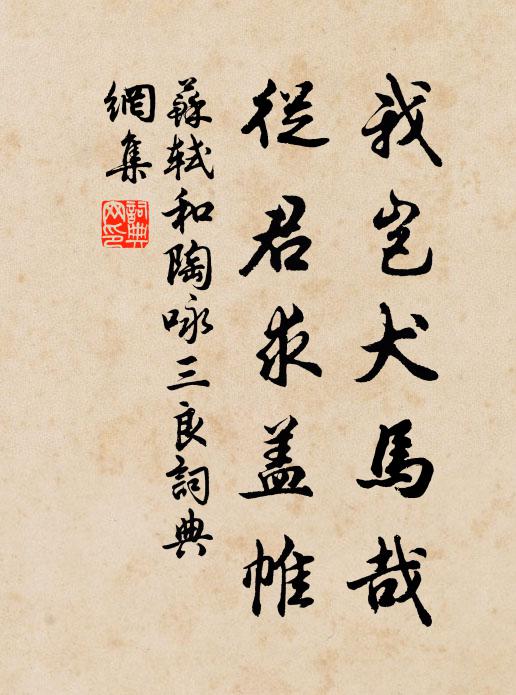 我岂犬馬哉
從君求盖帷
蘇軾和陶咏三良詞典
網集
詞典網印